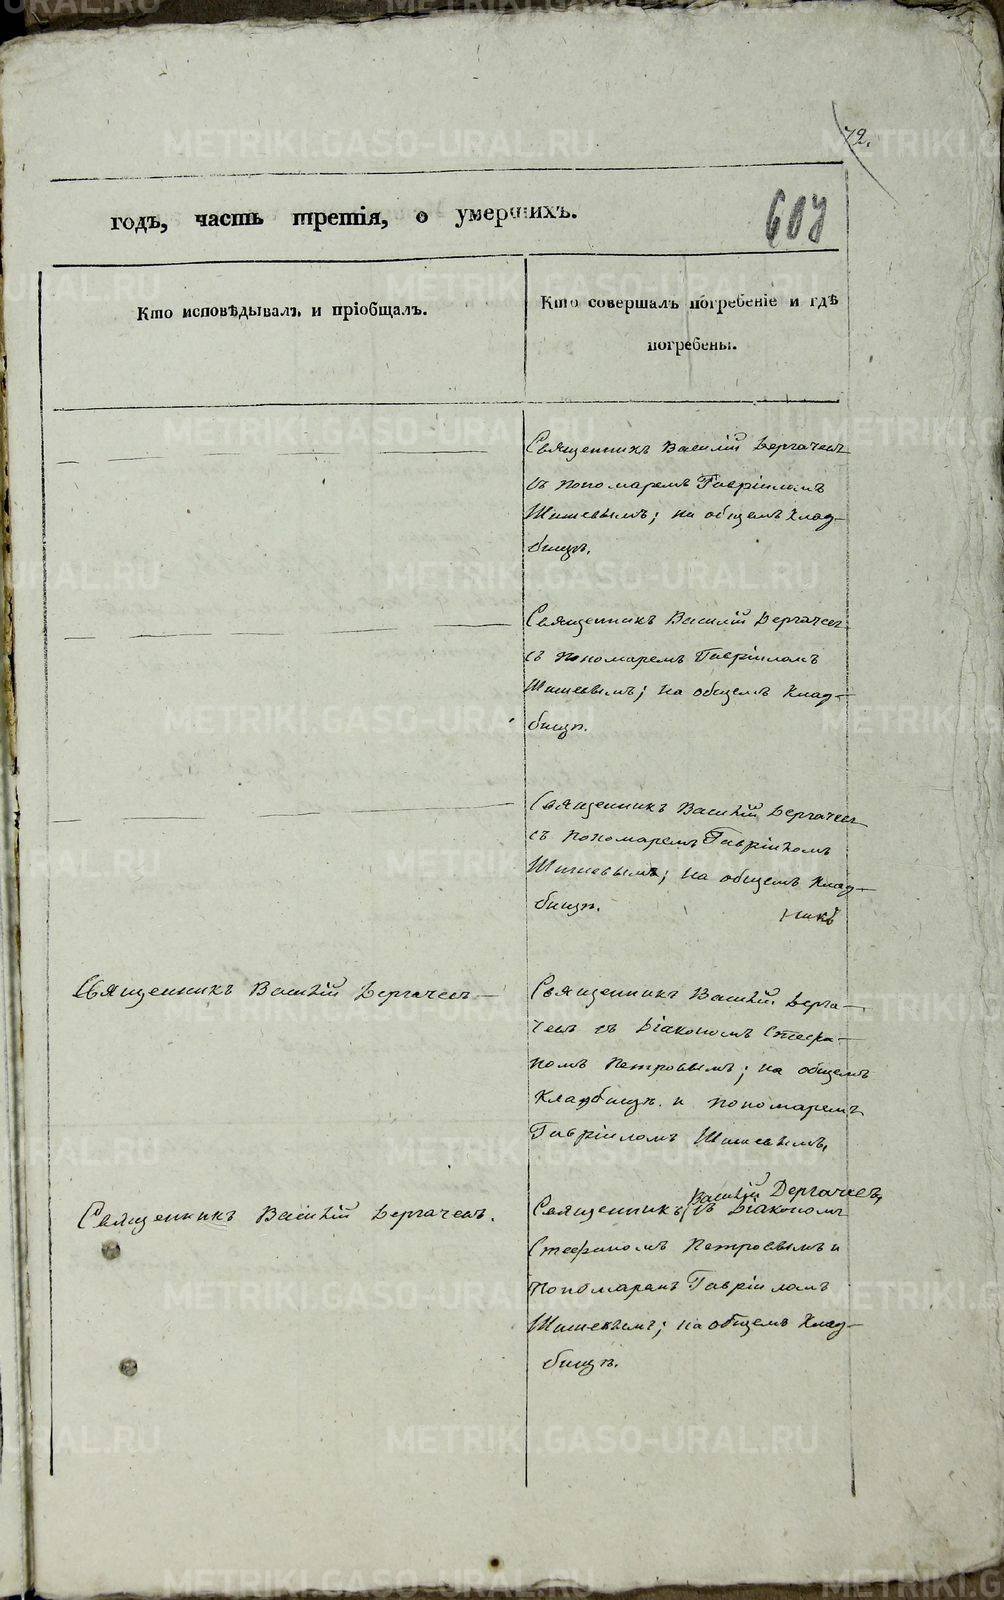 72.
годъ, часть третія, о умершихъ.
607
Кто исповѣдывалъ и пріобщалъ.
Кто совершалъ погребеніе и гдѣ
погребены.
Священникъ Василій Дергачевъ
съ пономаремъ Гавріиломъ
Шишевымъ; на общемъ клад-
бищѣ.
Священникъ Василій Дергачевъ
съ пономаремъ Гавріиломъ
Шишевымъ; на общемъ клад-
бищѣ.
Священникъ Василій Дергачевъ
съ пономаремъ Гавріиломъ
Шишевымъ; на общемъ клад-
бищѣ.
Священникъ Василій Дергачевъ
Священникъ Василій Дерга-
чевъ съ Діакономъ Стефа-
номъ Петровымъ; на общемъ
кладбищѣ. и пономаремъ
Гавріиломъ Шишевымъ.
Священникъ Василій Дергачевъ.
Василій Дергачевъ,
Священникъ съ Діакономъ
Стефаномъ Петровымъ и
пономаремъ Гавріиломъ
Шишевымъ; на общемъ клад-
бищѣ.
METRIKI.GASO-URAL.RU